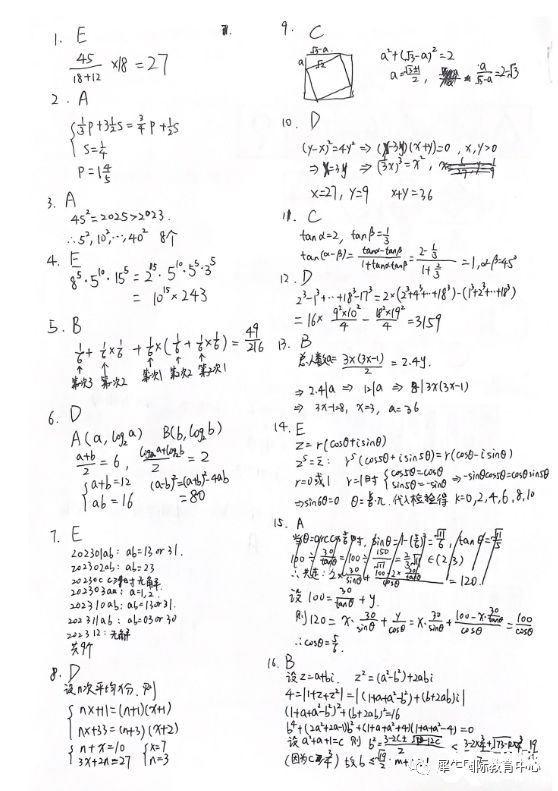 1. E
45/(18+12) ×18 = 27
2. A
{ 1/3 P + 3 1/2 S = 3/4 P + 1/2 S
S = 1/4
P = 1 4/5
3. A
45² = 2025 > 2023.
∴ 5², 10², …, 40² 8个
4. E
8⁵·5¹⁰·15⁵ = 2¹⁵·5¹⁰·5⁵·3⁵
= 10¹⁵ × 243
5. B
1/6 + 1/6 × 1/6 + 1/6 × (1/6 + 1/6 × 1/6) = 49/216
第1次3 第1次2 第1次1 第2次2 第2次1
6. D
A(a, log₂a) B(b, log₂b)
(a+b)/2 = 6, (log₂a+log₂b)/2 = 2
{ a+b = 12 (a-b)² = (a+b)² - 4ab
ab = 16 = 80
7. E
202301ab: ab = 13 or 31.
202302ab: ab = 23
202303aa: a = 1, 2.
202310ab: ab = 13 or 31.
202311ab: ab = 03 or 30
202312: 无解
共9个
8. D
设n次平均x分. 则
{ nx + 11 = (n+1)(x+1)
nx + 33 = (n+3)(x+2)
{ n + x = 10 { x = 7
3x + 2n = 27 n = 3
9. C
√3-a
a √2
a² + (√3-a)² = 2
a = (√3+1)/2, a/(√3-a) = 2+√3
10. D
(y-x)² = 4y² ⇒ (x-3y)(x+y) = 0, x, y > 0
⇒ x = 3y ⇒ (1/3 x)³ = x²,
x = 27, y = 9 x+y = 36
11. C
tanα = 2, tanβ = 1/3
tan(α-β) = (tanα - tanβ)/(1 + tanα tanβ) = (2 - 1/3)/(1 + 2/3) = 1, α-β = 45°
12. D
2³ - 1³ + … + 18³ - 17³ = 2×(2³+4³+…+18³) - (1³+2³+…+18³)
= 16 × 9²×10²/4 - 18²×19²/4 = 3159
13. B
总人数a = 3x(3x-1)/2 = 2.4y.
⇒ 2.4|a ⇒ 12|a ⇒ 8|3x(3x-1)
⇒ 3x-1=8, x = 3, a = 36
14. E
z = r(cosθ + i sinθ)
z⁵ = z̄: r⁵(cos5θ + i sin5θ) = r(cosθ - i sinθ)
r = 0 或 1 r = 1 时 { cos5θ = cosθ ⇒ -sinθcos5θ = cosθ sin5θ
sin5θ = -sinθ
⇒ sin6θ = 0 θ = k/6 π. 代入检验得 k = 0, 2, 4, 6, 8, 10
15. A
设 100 = 30/tanθ + y.
则 120 = x· 30/sinθ + y/cosθ = x· 30/sinθ + (100 - x· 30/tanθ)/cosθ = 100/cosθ
∴ cosθ = 5/6.
16. B
设 z = a+bi. z² = (a²-b²) + 2abi
4 = |1+z+z²| = |(1+a+a²-b²) + (b+2ab)i|
(1+a+a²-b²)² + (b+2ab)² = 16
b⁴ + (2a²+2a-1)b² + (1+a+a²+4)(1+a+a²-4) = 0
设 a²+a+1 = c 则 b² =
犀牛国际教育中心